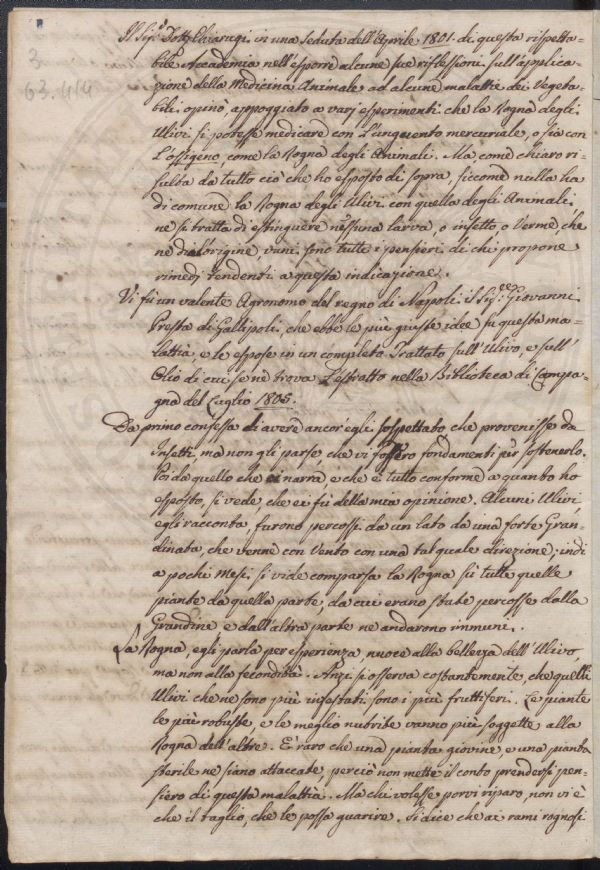 3
63.414
Il Sig.r Dott. Chiarugi in una seduta dell'Aprile 1801. di questa rispetta=
bile Accademia nell'esporre alcune sue riflessioni sull'applica=
zione della Medicina Animale ad alcune malattie dei Vegeta=
bili opinò, appoggiato a varj esperimenti che la Rogna degli
Ulivi si potesse medicare con L'unguento mercuriale, o sia con
L'ossigeno, come la Rogna degli Animali. Ma, come chiaro ri=
sulta da tutto ciò che ho esposto di sopra, siccome nulla ha
di comune la Rogna degli Ulivi con quella degli Animali,
ne si tratta di estinguere nessuna larva, o insetto, o Verme, che
ne dia l'origine, vani sono tutti i pensieri di chi propone
rimedj tendenti a questa indicazione.
Vi fù un valente Agronomo del regno di Napoli il Sig.r Giovanni
Presta di Gallipoli, che ebbe le più giuste idee su questa ma=
lattia, e le espose in un completo Trattato sull'Ulivo, e sull'
Olio di cui se ne trova L'estratto nella Biblioteca di Campa=
gna del Luglio 1805.
Da primo confessa di avere ancor'egli sospettato che provenisse da
Insetti, ma non gli parse che vi fossero fondamenti per sostenerlo.
Poi da quello che ci narra, e che è tutto conforme a quanto ho
esposto, si vede, che ei fù della mia opinione. Alcuni Ulivi
egli racconta, furono percossi da un lato da una forte Gran=
dinata, che venne con Vento con una tal quale direzione; indi
a pochi Mesi si vide comparsa la Rogna sù tutte quelle
piante da quella parte, da cui erano state percosse dalla
Grandine e dall'altra parte ne andarono immuni.
La Rogna, egli parla per esperienza, nuoce alla bellezza dell'Ulivo,
ma non alla fecondità. Anzi si osserva costantemente, che quelli
Ulivi che ne sono più infestati sono i più fruttiferi. Le piante
le più robuste, e le meglio nutrite vanno più soggette alla
Rogna dell'altre. È raro che una pianta giovine, e una pianta
sterile ne siano attaccate, perciò non mette il conto prendersi pen=
siero di questa malattia. Ma chi volesse porvi riparo, non vi è
che il taglio, che le possa guarire. Si dice che ai rami rognosi